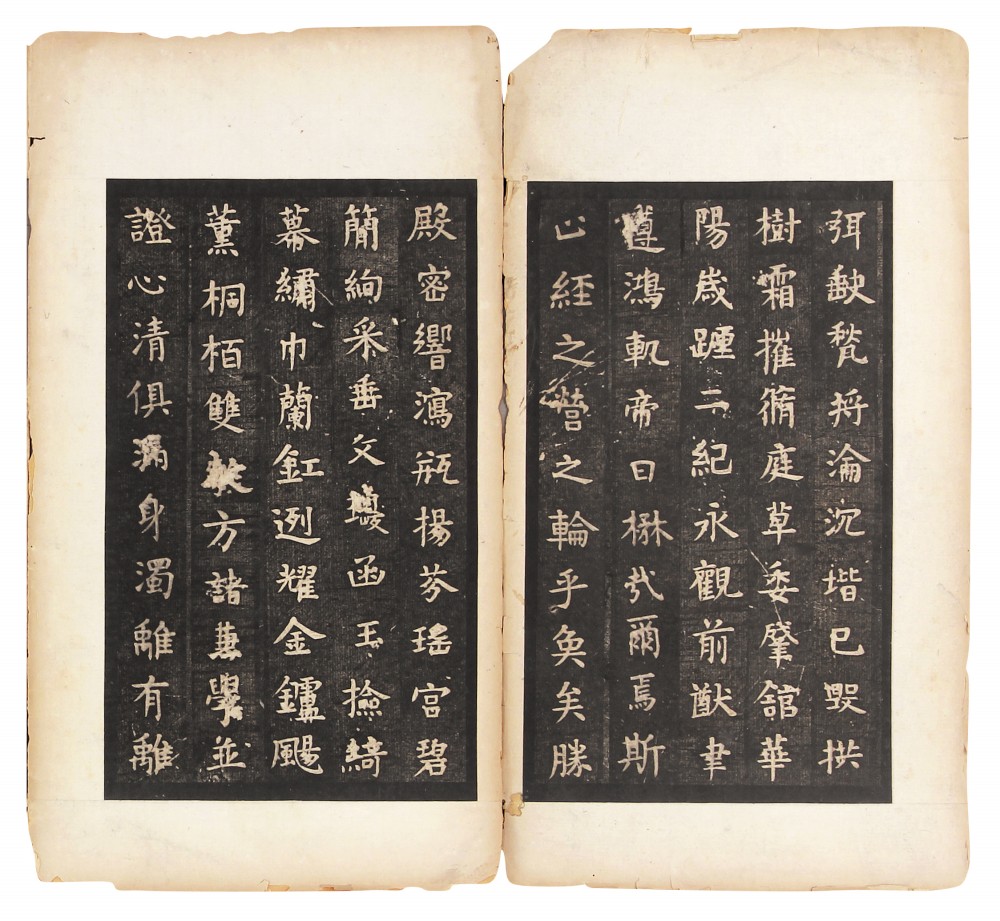 弭歇甃将淪沉堦已毀拱
樹霜摧脩庭草委肇舘華
陽歲躔二紀永觀前猷聿
遵鴻軌帝曰楙哉爾焉斯
心經之營之輪乎奐矣勝
殿密響瀉瓶揚芬瑤宮碧
簡絢采垂文瓊函玉撿綺
幕繡巾蘭釭迾耀金鑪颺
薰桐栢雙教方諸兼學並
證心清俱滿身濁離有離